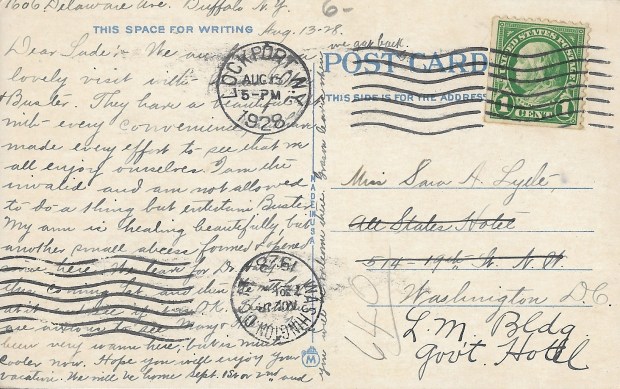 1606, Delaware Ave. Buffalo N.Y.
6-
THIS SPACE FOR WRITING
Aug. 13-28.
Dear Sadie:- We
lovely visit with
Buster. They have a beautiful
with every convenience
made every effort to see that we
all enjoy ourselves. I am the
invalid and am not allowed
to do a thing but entertain Buster.
My arm is healing beautifully but
another small abcess formed & opened
since here. We leave for
this coming Sat. and then
O.K.
are anxious to see
been very warm here, but is much
cooler now. Hope you will enjoy your
vacation. We will be home Sept. 1st or 2nd and
we get back.
LOCKPORT, N.Y.
AUG 15
5-PM
1928
POST CARD
THIS SIDE IS FOR THE ADDRESS
UNITED STATES POSTAGE
1 CENT 1
MADE IN U.S.A.
Miss Sara A. Lyde,
All States Hotel
514-19th St. N.W.
Washington D.C.
L.M. Bldg
Gov't. Hotel
640
WASHINGTON, D.C.
1928
M